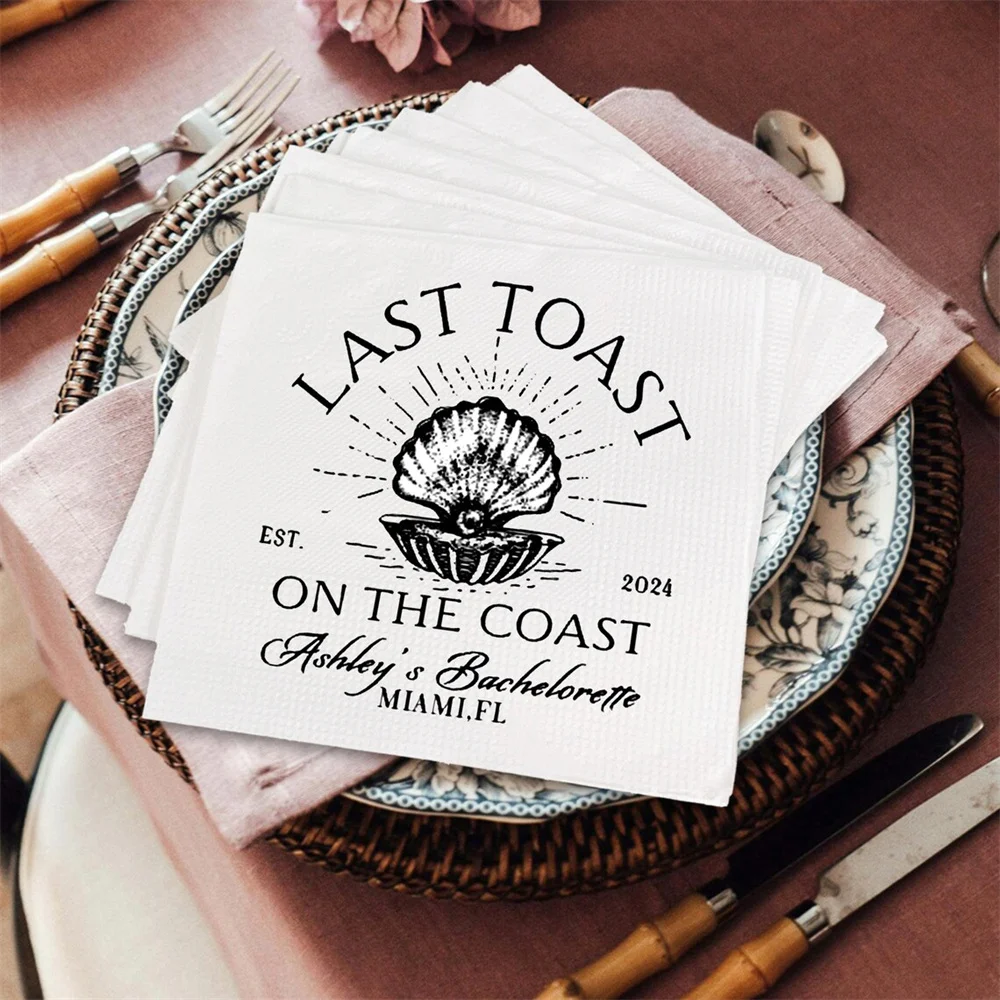 LAST TOAST
EST.
2024
ON THE COAST
Ashley's Bachelorette
MIAMI,FL